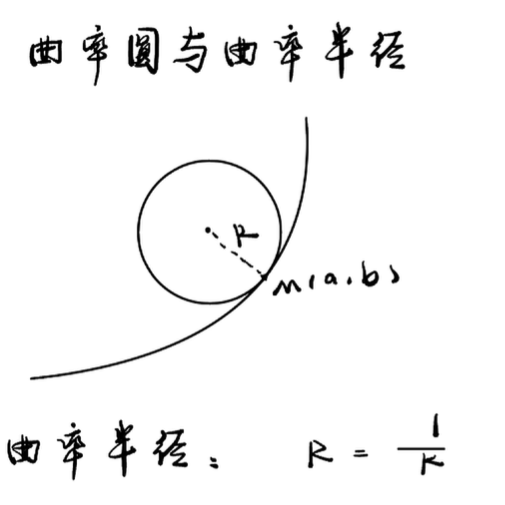 曲率圆与曲率半径
R
M(a,b)
曲率半径: R = 1/K